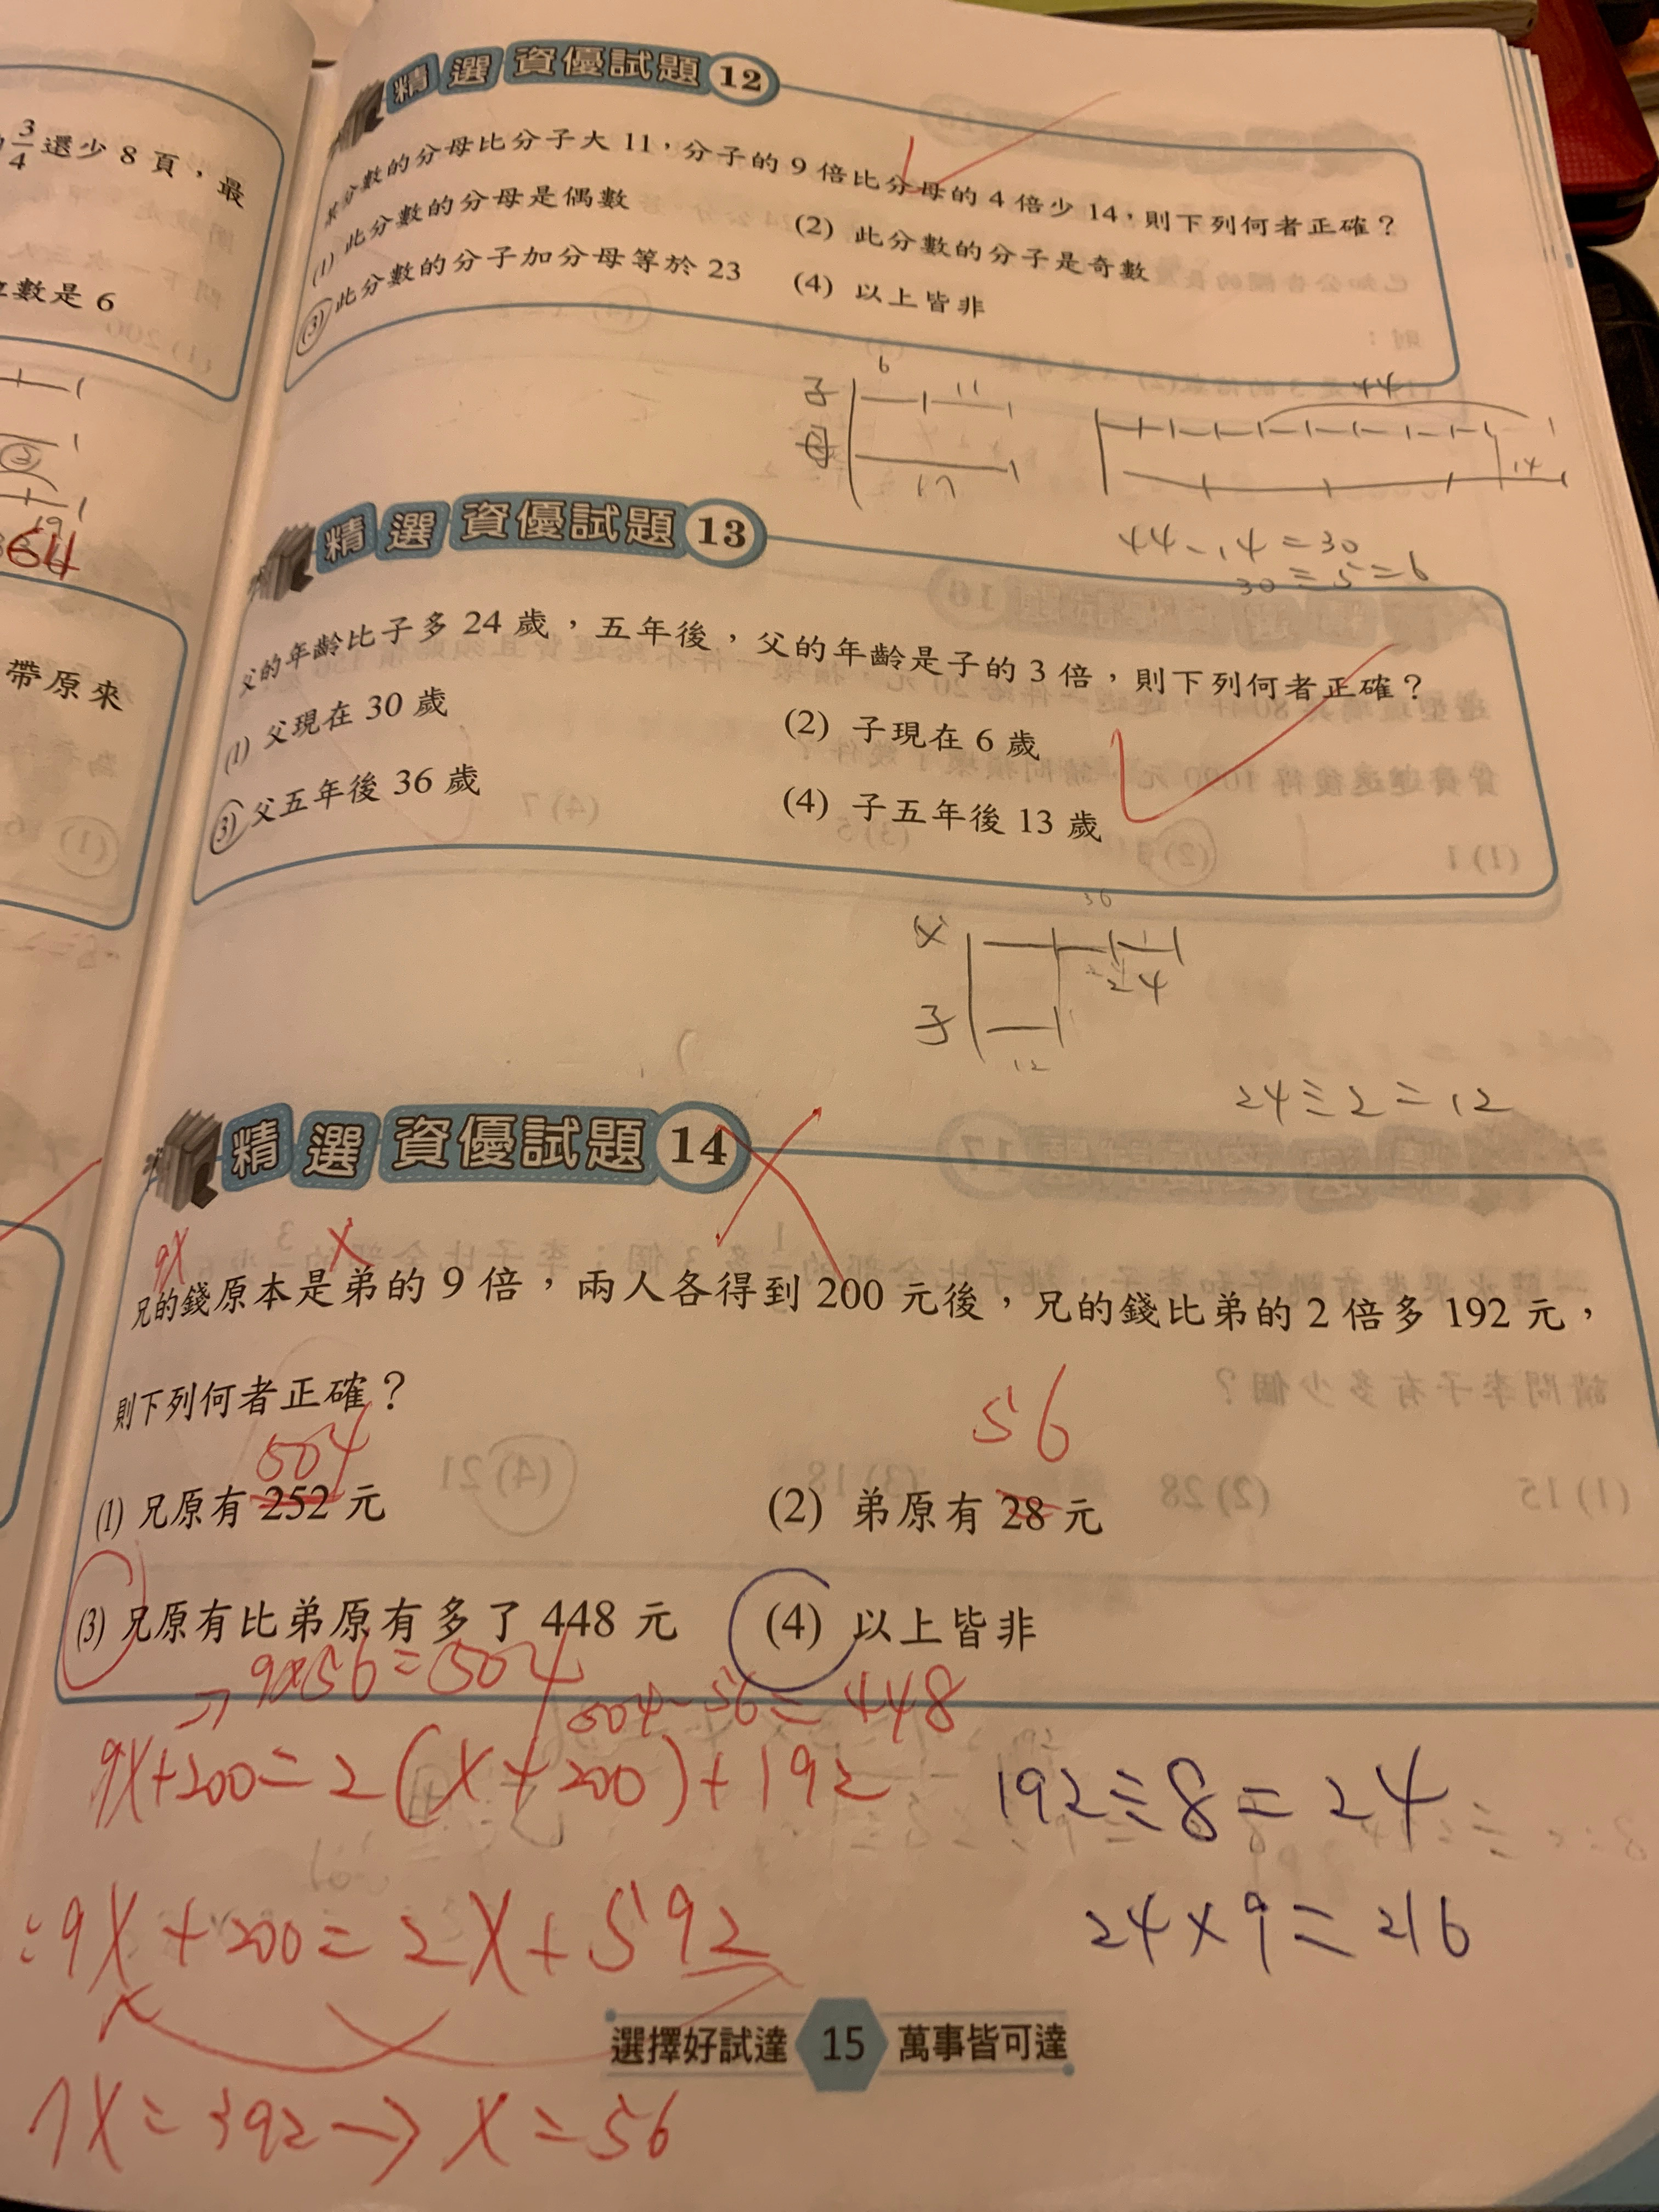 3/4 還少 8 頁，最
數是 6
19
64
帶原來
精選 資優試題 12
某分數的分母比分子大 11，分子的 9 倍比分母的 4 倍少 14，則下列何者正確？
(1) 此分數的分母是偶數
(2) 此分數的分子是奇數
(3) 此分數的分子加分母等於 23
(4) 以上皆非
6
子 11
44
母
17
14
44-14=30
30÷5=6
精選 資優試題 13
父的年齡比子多 24 歲，五年後，父的年齡是子的 3 倍，則下列何者正確？
(1) 父現在 30 歲
(2) 子現在 6 歲
(3) 父五年後 36 歲
(4) 子五年後 13 歲
36
父
24
子
12
24÷2=12
精選 資優試題 14
9X X
兄的錢原本是弟的 9 倍，兩人各得到 200 元後，兄的錢比弟的 2 倍多 192 元，
則下列何者正確？
504
56
(1) 兄原有 252 元
(2) 弟原有 28 元
(3) 兄原有比弟原有多了 448 元
(4) 以上皆非
→ 9×56=504
504-56=448
9X+200=2(X+200)+192
192÷8=24
9X+200=2X+592
24×9=216
7X=392→X=56
選擇好試達 15 萬事皆可達